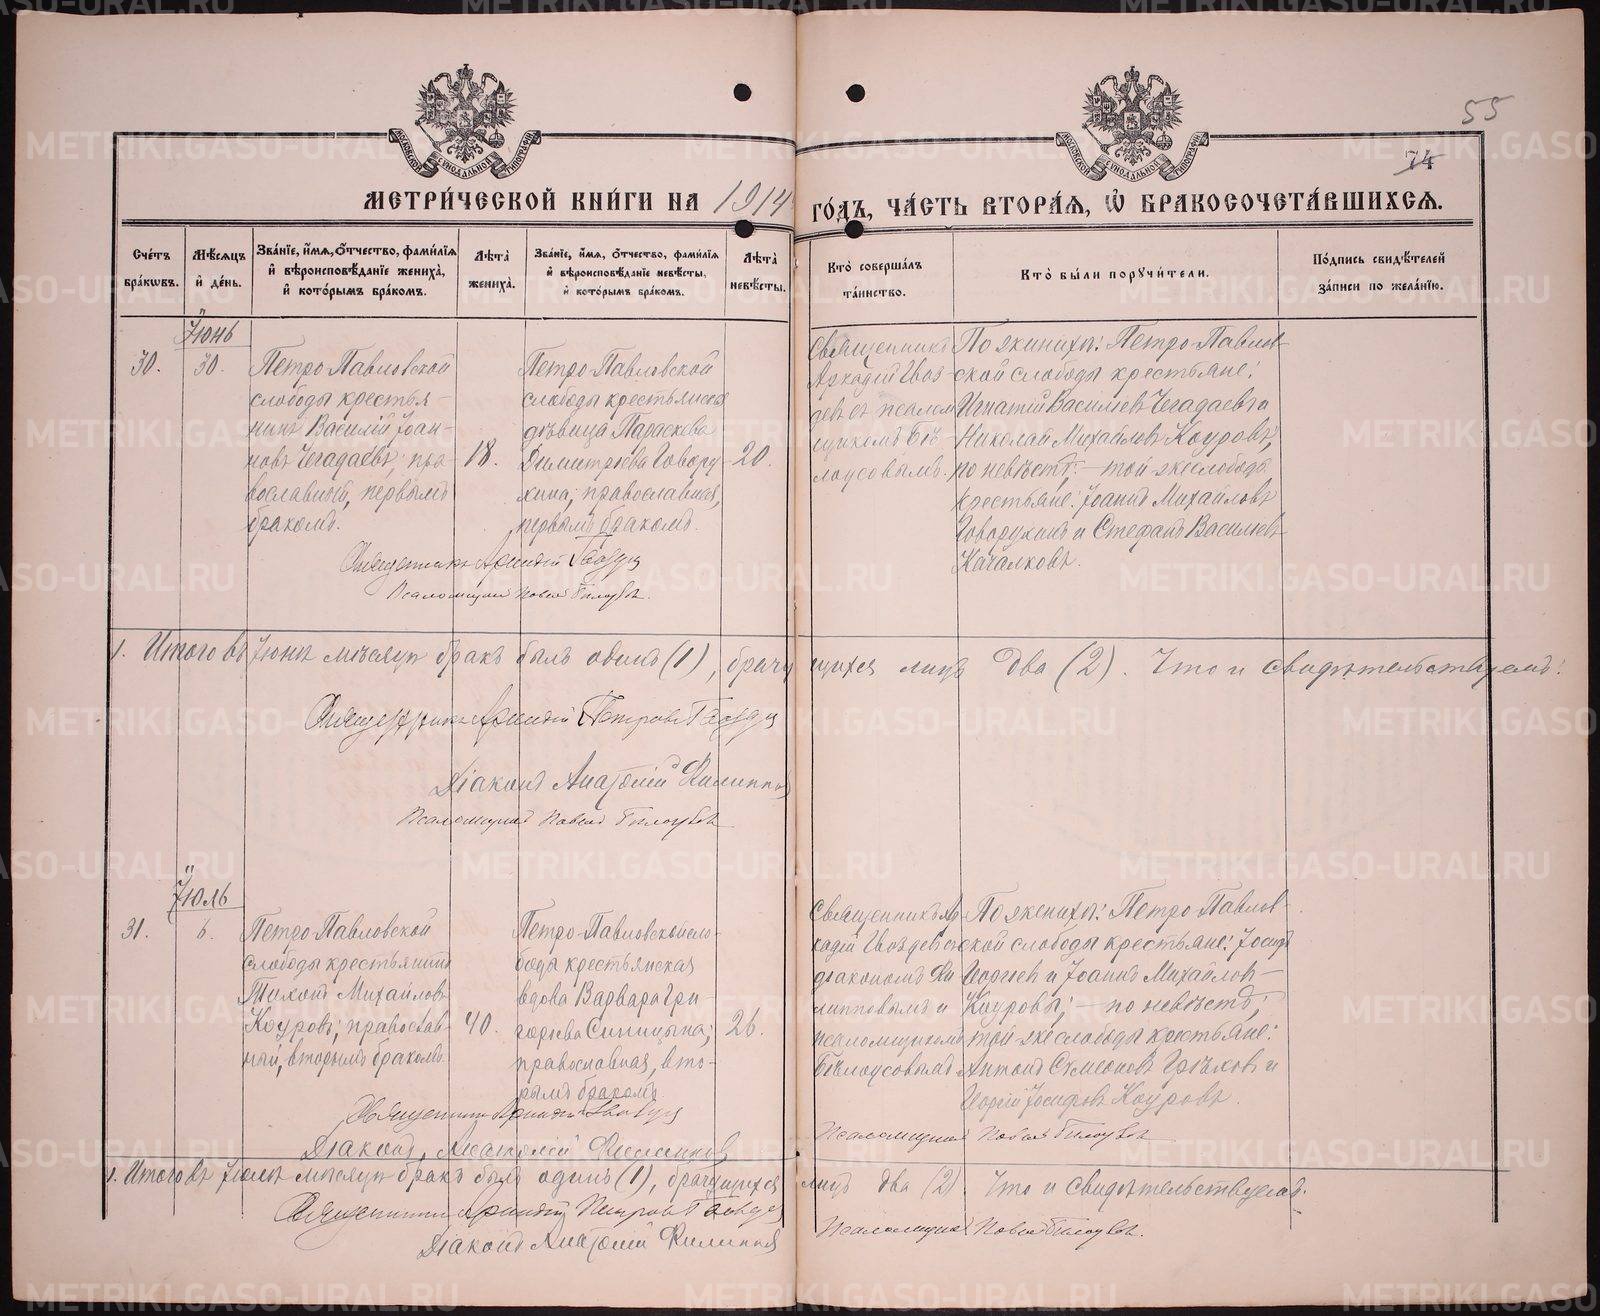 55
74
МОСКОВСКОЙ СѴНОДАЛЬНОЙ ТИПОГРАФІИ
МОСКОВСКОЙ СѴНОДАЛЬНОЙ ТИПОГРАФІИ
МЕТРИ́ЧЕСКОЙ КНИ́ГИ НА 1914 ГО́ДЪ, ЧА́СТЬ ВТОРА́Я, Ѽ БРАКОСОЧЕТА́ВШИХСЯ.
Сче́тъ бра́кѡвъ.
Мѣ́сяцъ и҆ де́нь.
Зва́нїе, и҆́мя, ѻ҆́тчество, фами́лїя и҆ вѣроисповѣ́данїе жениха̀, и҆ кото́рымъ бра́комъ.
Лѣ́та жениха̀.
Зва́нїе, и҆́мя, ѻ҆́тчество, фами́лїя и҆ вѣроисповѣ́данїе невѣ́сты, и҆ кото́рымъ бра́комъ.
Лѣ́та невѣ́сты.
Кто̀ соверша́лъ та́инство.
Кто̀ бы́ли порꙋчи́тели.
По́дпись свидѣ́телей за́писи по жела́нїю.
Іюнь
30.
30.
Петро-Павловской
слободы крестья-
нинъ Василій Іоан-
новъ Чегадаевъ, пра-
вославный, первымъ
бракомъ.
18.
Петро-Павловской
слободы крестьянская
дѣвица Параскева
Димитріева Говору-
хина; православная,
первымъ бракомъ.
20.
Священникъ
Аркадій Гвоз-
девъ съ псалом
щикомъ Бѣ-
лоусовымъ.
По женихѣ: Петро-Павлов-
ской слободы крестьяне:
Игнатій Васильевъ Чегадаевъ и
Николай Михайловъ Коуровъ;
по невѣстѣ: — той же слободы
крестьяне: Іоаннъ Михайловъ
Говорухинъ и Стефанъ Васильевъ
Качалковъ.
Священникъ Аркадій Гвоздев
Псаломщикъ Павелъ Бѣлоусовъ.
1. Итого въ Іюнѣ мѣсяцѣ бракъ былъ одинъ (1), брачу щихся лицъ два (2). Что и свидѣтельствуемъ:
Священникъ Аркадій Петровъ Гвоздев
Діаконъ Анатолій Филиппов
Псаломщикъ Павелъ Бѣлоусовъ
Іюль
31.
6.
Петро-Павловской
слободы крестьянинъ
Тихонъ Михайловъ
Коуровъ; православ-
ный, вторымъ бракомъ.
40.
Петро-Павловской сло-
боды крестьянская
вдова Варвара Гри-
горьева Синицына;
православная, вто-
рымъ бракомъ.
26.
Священникъ Ар
кадій Гвоздевъ съ
діакономъ Фи
липповымъ и
псаломщикомъ
Бѣлоусовымъ
По женихѣ: Петро Павлов-
ской слободы крестьяне: Іосифъ
Георгіев и Іоаннъ Михайлов —
Коуровы; — по невѣстѣ;
той-же слободы крестьяне:
Антонъ Сѵмеоновъ Грѣховъ и
Георгій Іосифовъ Коуровъ.
Священникъ Аркадій Гвоздев
Діаконъ, Анатолій Филиппов
Псаломщикъ Павелъ Бѣлоусовъ
1. Итого въ Іюлѣ мѣсяцѣ бракъ былъ одинъ (1), брачущихся лицъ два (2). Что и свидѣтельствуемъ:
Священникъ Аркадій Петровъ Гвоздев
Діаконъ Анатолій Филиппов
Псаломщикъ Павелъ Бѣлоусовъ.
METRIKI.GASO-URAL.RU